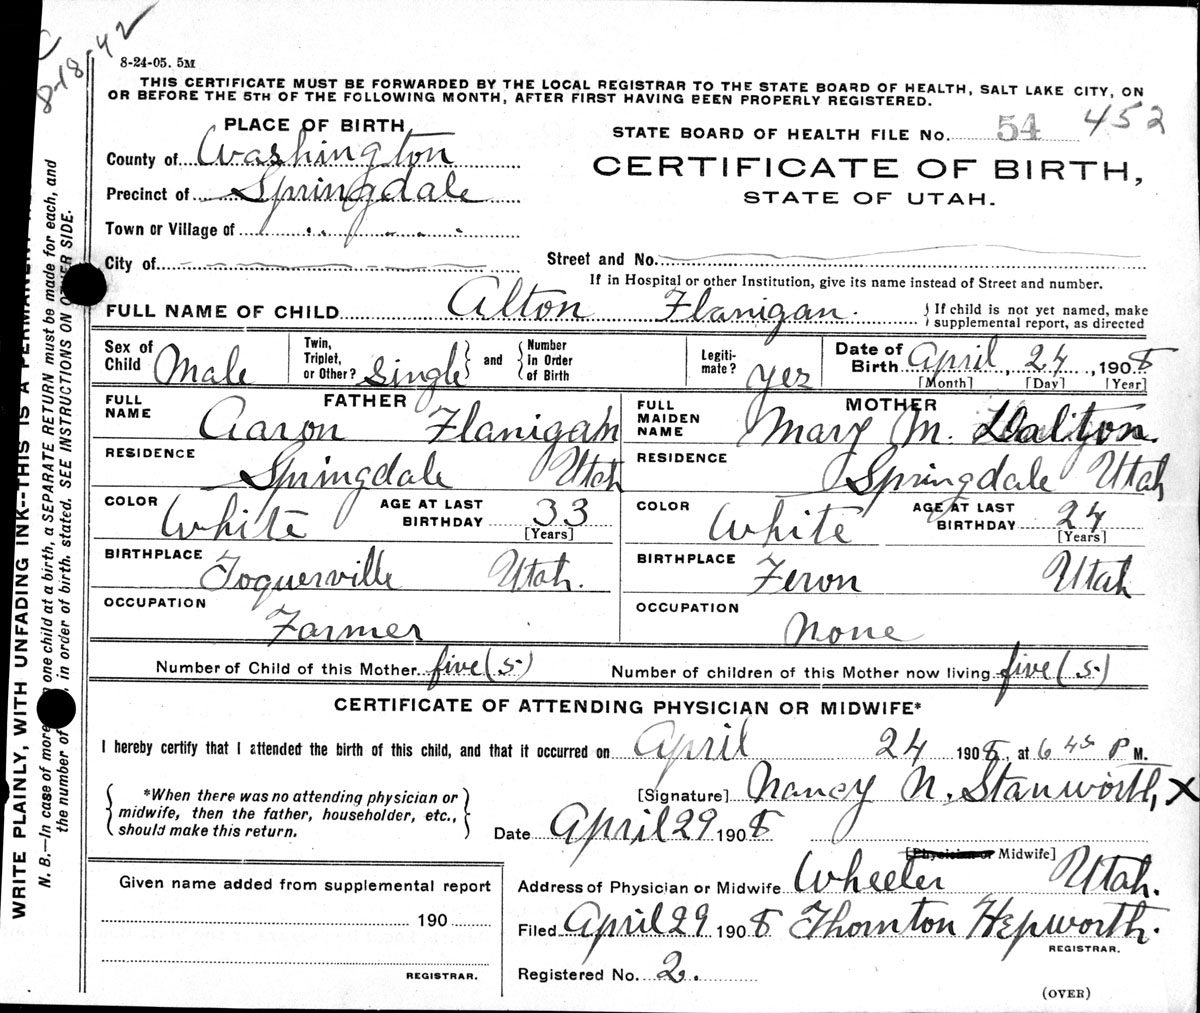 C
8-18-42
8-24-05. 5M
THIS CERTIFICATE MUST BE FORWARDED BY THE LOCAL REGISTRAR TO THE STATE BOARD OF HEALTH, SALT LAKE CITY, ON
OR BEFORE THE 5TH OF THE FOLLOWING MONTH, AFTER FIRST HAVING BEEN PROPERLY REGISTERED.
PLACE OF BIRTH
STATE BOARD OF HEALTH FILE NO. 54 452
County of Washington
CERTIFICATE OF BIRTH,
Precinct of Springdale
STATE OF UTAH.
Town or Village of " "
City of
Street and No.
If in Hospital or other Institution, give its name instead of Street and number.
FULL NAME OF CHILD Alton Flanigan.
If child is not yet named, make
supplemental report, as directed
Sex of Child Male
Twin, Triplet, or Other? Single
and
Number in Order of Birth
Legiti-mate? yes
Date of Birth April, 24, 1908
[Month] [Day] [Year]
FATHER
FULL NAME Aaron Flanigan
RESIDENCE Springdale Utah
COLOR White
AGE AT LAST BIRTHDAY 33
[Years]
BIRTHPLACE Toquerville Utah.
OCCUPATION Farmer
MOTHER
FULL MAIDEN NAME Mary M. Dalton.
RESIDENCE Springdale Utah
COLOR White
AGE AT LAST BIRTHDAY 24
[Years]
BIRTHPLACE Feron Utah
OCCUPATION None
Number of Child of this Mother five (5)
Number of children of this Mother now living five (5)
CERTIFICATE OF ATTENDING PHYSICIAN OR MIDWIFE*
I hereby certify that I attended the birth of this child, and that it occurred on April 24 1908, at 6 45 P M.
*When there was no attending physician or
midwife, then the father, householder, etc.,
should make this return.
[Signature] Nancy N. Stanworth, X
Date April 29 1908
[Physician or Midwife]
Given name added from supplemental report
190
REGISTRAR.
Address of Physician or Midwife Wheeler Utah.
Filed April 29 1908 Thornton Hepworth.
REGISTRAR.
Registered No. 2.
(OVER)
WRITE PLAINLY, WITH UNFADING INK--THIS IS A PERMANENT
N. B.—In case of more one child at a birth, a SEPARATE RETURN must be made for each, and
the number of , in order of birth, stated. SEE INSTRUCTIONS ON OTHER SIDE.